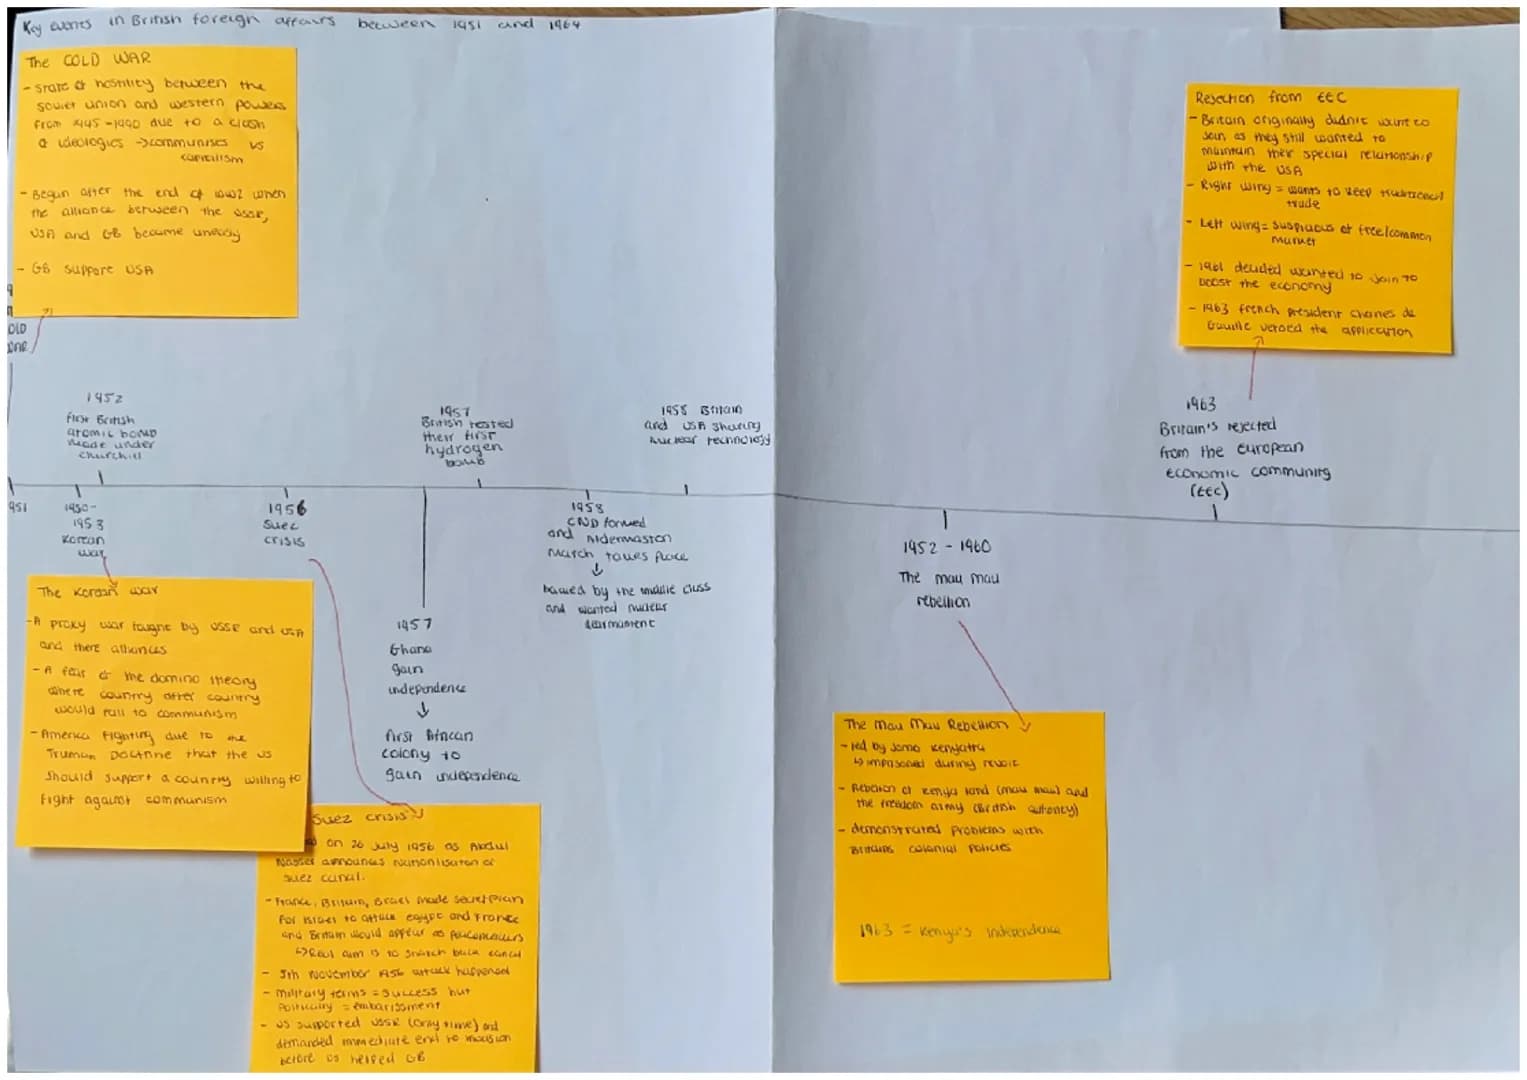 Key events in British foreign affairs between 1951 and 1964
The COLD WAR
- state of hostility between the
soviet union and western powers
from 1945-1990 due to a clash
of ideologies → communises vs
capitalism
- Begun after the end of WW2 when
the alliance between the USSR,
USA and GB became uneasy
- GB support USA
OLD
WAR
Rejection from EEC
- Britain originally didn't want to
Join as they still wanted to
maintain their special relationship
with the USA
- Right wing = wants to keep traditional
trade
- Left wing = suspicious of free/common
market
- 1961 decided wanted to join to
boost the economy
- 1963 french president Charles de
Gaulle vetoed the application
1952
First British
atomic bomb
made under
churchill
1957
British tested
their first
hydrogen
bomb
1958 Britain
and USA sharing
nuclear technology
1963
Britain's rejected
from the european
economic community
(EEC)
951
1950-
1953
Korean
war
1956
Suez
crisis
1958
CND formed
and Aldermaston
March takes place
↓
backed by the middle class
and wanted nuclear
dearmament
1952 - 1960
The mau mau
rebellion
1957
Ghana
gain
independence
↓
first African
colony to
gain independence
The Korean war
- A proxy war faught by USSR and USA
and there alliances
- A fear of the domino theory
where country after country
would fall to communism
- America fighting due to the
Truman Doctrine that the US
should support a country willing to
fight against communism
Suez crisis
on 26 July 1956 as Abdul
Nasser announces nationlisation of
suez canal.
- France, Britain, Israel made secret plan
for Israel to attack egypt and France
and Britain would appear as peacemakers
↳ Real aim is to snatch back canal
- 5th November 1956 attack happened
- military terms = success but
Politically = embarissment
- US supported USSR (only time) and
demanded immediate end to invasion
before US helped GB
The Mau Mau Rebellion
- led by Jomo Kenyatta
↳ imprisoned during revolt
- Rebelion of Kenya land (mau mau) and
the freedom army (British
- demonstrated problems with
Britains colonial policies
1963 = Kenya's independence